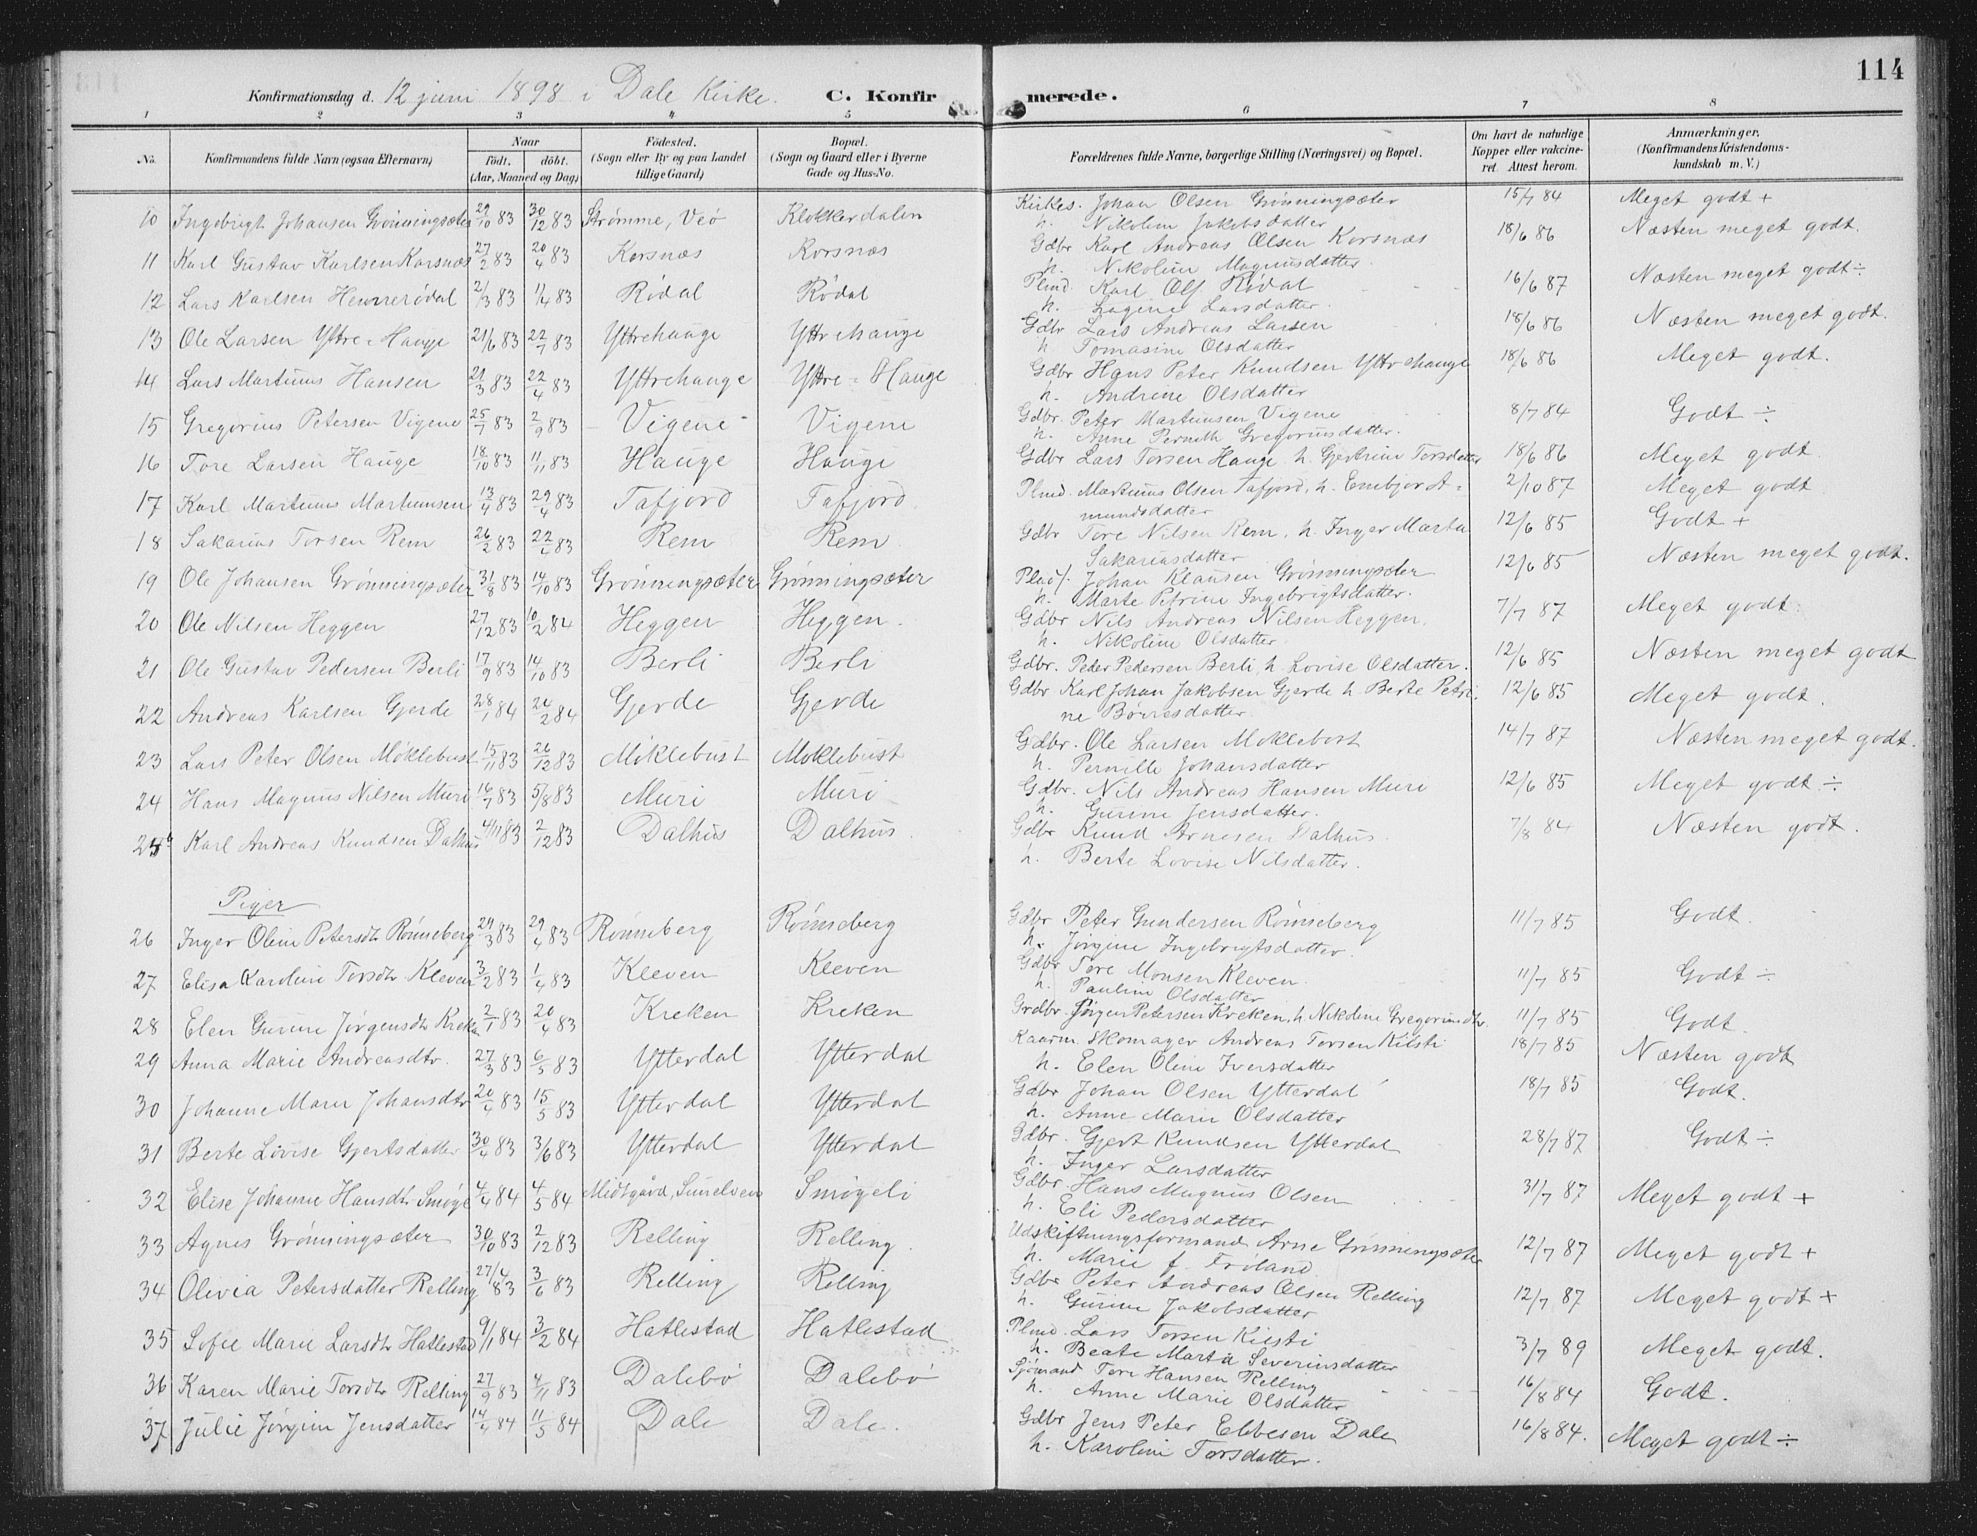 114
Konfirmationsdag d. 12 juni 1898 i Dale Kirke. C. Konfirmerede.
1 2 3 4 5 6 7 8
No. Konfirmandens fulde Navn (ogsaa Efternavn) Naar født. døbt. (Aar, Maaned og Dag) Fødested. (Sogn eller By og paa Landet tillige Gaard) Bopæl. (Sogn og Gaard eller i Byerne Gade og Hus-No. Forældrenes fulde Navne, borgerlige Stilling (Næringsvei) og Bopæl. Om havt de naturlige Kopper eller vaccineret. Attest herom. Anmærkninger. (Konfirmandens Kristendomskundskab m. V.)
10 Ingebrigt Johansen Grønningsæter 29/10 83 30/12 83 Strømme, Veø Klokkerdalen Kirkes. Johan Olsen Grønningsæter 15/7 84 Meget godt +
h. Nikolin Jakobsdatter
11 Karl Gustav Karlsen Korsnæs 27/2 83 20/4 83 Korsnæs Korsnæs Gdbr Karl Andreas Olsen Korsnæs 18/6 86 Næsten meget godt.
h. Nikoline Magnusdatter.
12 Lars Karlsen Rødal 21/3 83 11/4 83 Rødal Rødal Plmd. Karl Ols. Rødal 16/6 87 Næsten meget godt ÷
h. Larsdatter.
13 Ole Larsen Yttre-Hauge 21/6 83 22/7 83 Yttrehauge Yttrehauge Gdbr Lars Andreas Larsen 18/6 86 Næsten meget godt.
h Tomasine Olsdatter
14 Lars Martinus Hansen 21/3 83 22/4 83 Yttrehauge Yttre-Hauge Gdbr Hans Peter Knudsen Yttrehauge 18/6 86 Meget godt.
h. Andrine Olsdatter
15 Gregorius Petersen Vigene 25/7 83 2/9 83 Vigene Vigene Gdbr. Peter Martinusen Vigene 8/7 84 Godt ÷
h. Anne Pernith Gregoriusdatter.
16 Tore Larsen Hauge 18/10 83 11/11 83 Hauge Hauge Gdbr Lars Torsen Hauge h. Gjertrine Torsdatter 18/6 86 Meget godt.
17 Karl Martinus Martinusen 13/4 83 29/4 83 Tafjord Tafjord Plmd. Martinus Olsen Tafjord, h. Embjør A= 2/10 87 Meget godt
mundsdatter
18 Sakarias Torsen Rem 26/2 83 22/4 83 Rem Rem Gdbr Tore Nilsen Rem, h. Inger Marta 12/6 85 Godt +
Sakariasdatter
19 Ole Johansen Grønningsæter 31/8 83 14/10 83 Grønningsæter Grønningsæter Plads/. Johan Klausen Grønningsæter 12/6 85 Næsten meget godt.
h. Marte Petrine Ingebrigtsdatter.
20 Ole Nilsen Heggen 27/12 83 10/2 84 Heggen Heggen. Gdbr Nils Andreas Nilsen Heggen. 7/7 87 Meget godt.
h. Nikoline Olsdatter
21 Ole Gustav Pedersen Berli 17/9 83 14/10 83 Berli Berli Gdbr. Peder Pedersen Berli h Lovise Olsdatter. 12/6 85 Næsten meget godt
22 Andreas Karlsen Gjerde 28/1 84 24/2 84 Gjerde Gjerde Gdbr Karl Johan Jakobsen Gjerde h. Berte Petri- 12/6 85 Meget godt.
ne Børresdatter
23 Lars Peter Olsen Møklebust 15/11 83 26/12 83 Møklebust Møklebust Gdbr. Ole Larsen Møklebost 14/7 87 Næsten meget godt.
h. Pernille Johansdatter
24 Hans Magnus Nilsen Muri 16/7 83 5/8 83 Muri Muri Gdbr. Nils Andreas Hansen Muri 12/6 85 Meget godt ÷
h. Gurine Jensdatter.
25 Karl Andreas Knudsen Dalhus 4/11 83 2/12 83 Dalhus Dalhus. Gdbr Knud Arnesen Dalhus. 7/8 84 Næsten godt.
h. Berte Lovise Nilsdatter.
Piger
26 Inger Oline Petersdtr Rønneberg 29/3 83 29/4 83 Rønneberg Rønneberg Gdbr Peter Gundersen Rønneberg 11/7 85 Godt.
h. Jørgine Ingebrigtsdatter.
27 Elisa Karoline Torsdtr Kleven 3/2 83 1/4 83 Kleven Kleven Gdbr Tore Monsen Kleven. 11/7 85 Godt ÷
h. Pauline Olsdatter
28 Elen Gurine Jørgensdtr Kreken 2/1 83 20/4 83 Kreken Kreken Grdbr. Jørgen Petersen Kreken, h. Nikoline Gregoriusdtr. 11/7 85 Godt.
29 Anna Marie Andreasdtr. 27/3 83 6/5 83 Ytterdal Ytterdal Kaarm. Skomager Andreas Torsen Kilsti 18/7 85 Næsten godt
h. Elen Oline Iversdatter
30 Johanne Marie Johansdtr 20/4 83 15/5 83 Ytterdal Ytterdal Gdbr Johan Olsen Ytterdal 18/7 85 Godt.
h. Anne Marie Olsdatter
31 Berte Lovise Gjertsdatter 30/4 83 3/6 83 Ytterdal Ytterdal Gdbr. Gjert Knudsen Ytterdal 28/7 87 Godt ÷
h. Inger Larsdatter
32 Elise Johanne Hansdtr Smøge 4/4 84 4/5 84 Midtgård, Sunelven Smøgeli Gdbr Hans Magnus Olsen 31/7 87 Meget godt +
h. Eli Pedersdatter
33 Agnes Grønningsæter 30/10 83 2/12 83 Relling Relling. Udskiftningsformand Arne Grønningsæter 12/7 87 Meget godt +
h. Marie f. Frøland
34 Olivia Petersdatter Relling 27/4 83 3/6 83 Relling Relling Gdbr Peter Andreas Olsen Relling 12/7 87 Meget godt +
h. Gurine Jakobsdatter
35 Sofie Marie Larsdtr Hatlestad 9/1 84 3/2 84 Hatlestad Hatlestad Plmd. Lars Torsen Kilsti 3/7 89 Meget godt.
h. Beate Marta Severinsdatter
36 Karen Marie Torsdtr Relling 27/9 83 4/11 83 Dalebø Dalebø Sjømand Tore Hansen Relling 16/8 84 Godt.
h. Anne Marie Olsdatter
37 Julie Jørgine Jensdatter 14/4 84 11/5 84 Dale Dale. Gdbr Jens Peter Ebbesen Dale 16/8 84. Meget godt ÷
h. Karoline Torsdatter.